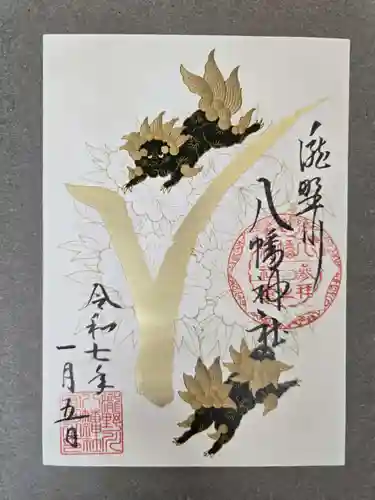 滝野川
八幡神社
令和七年
一月五日